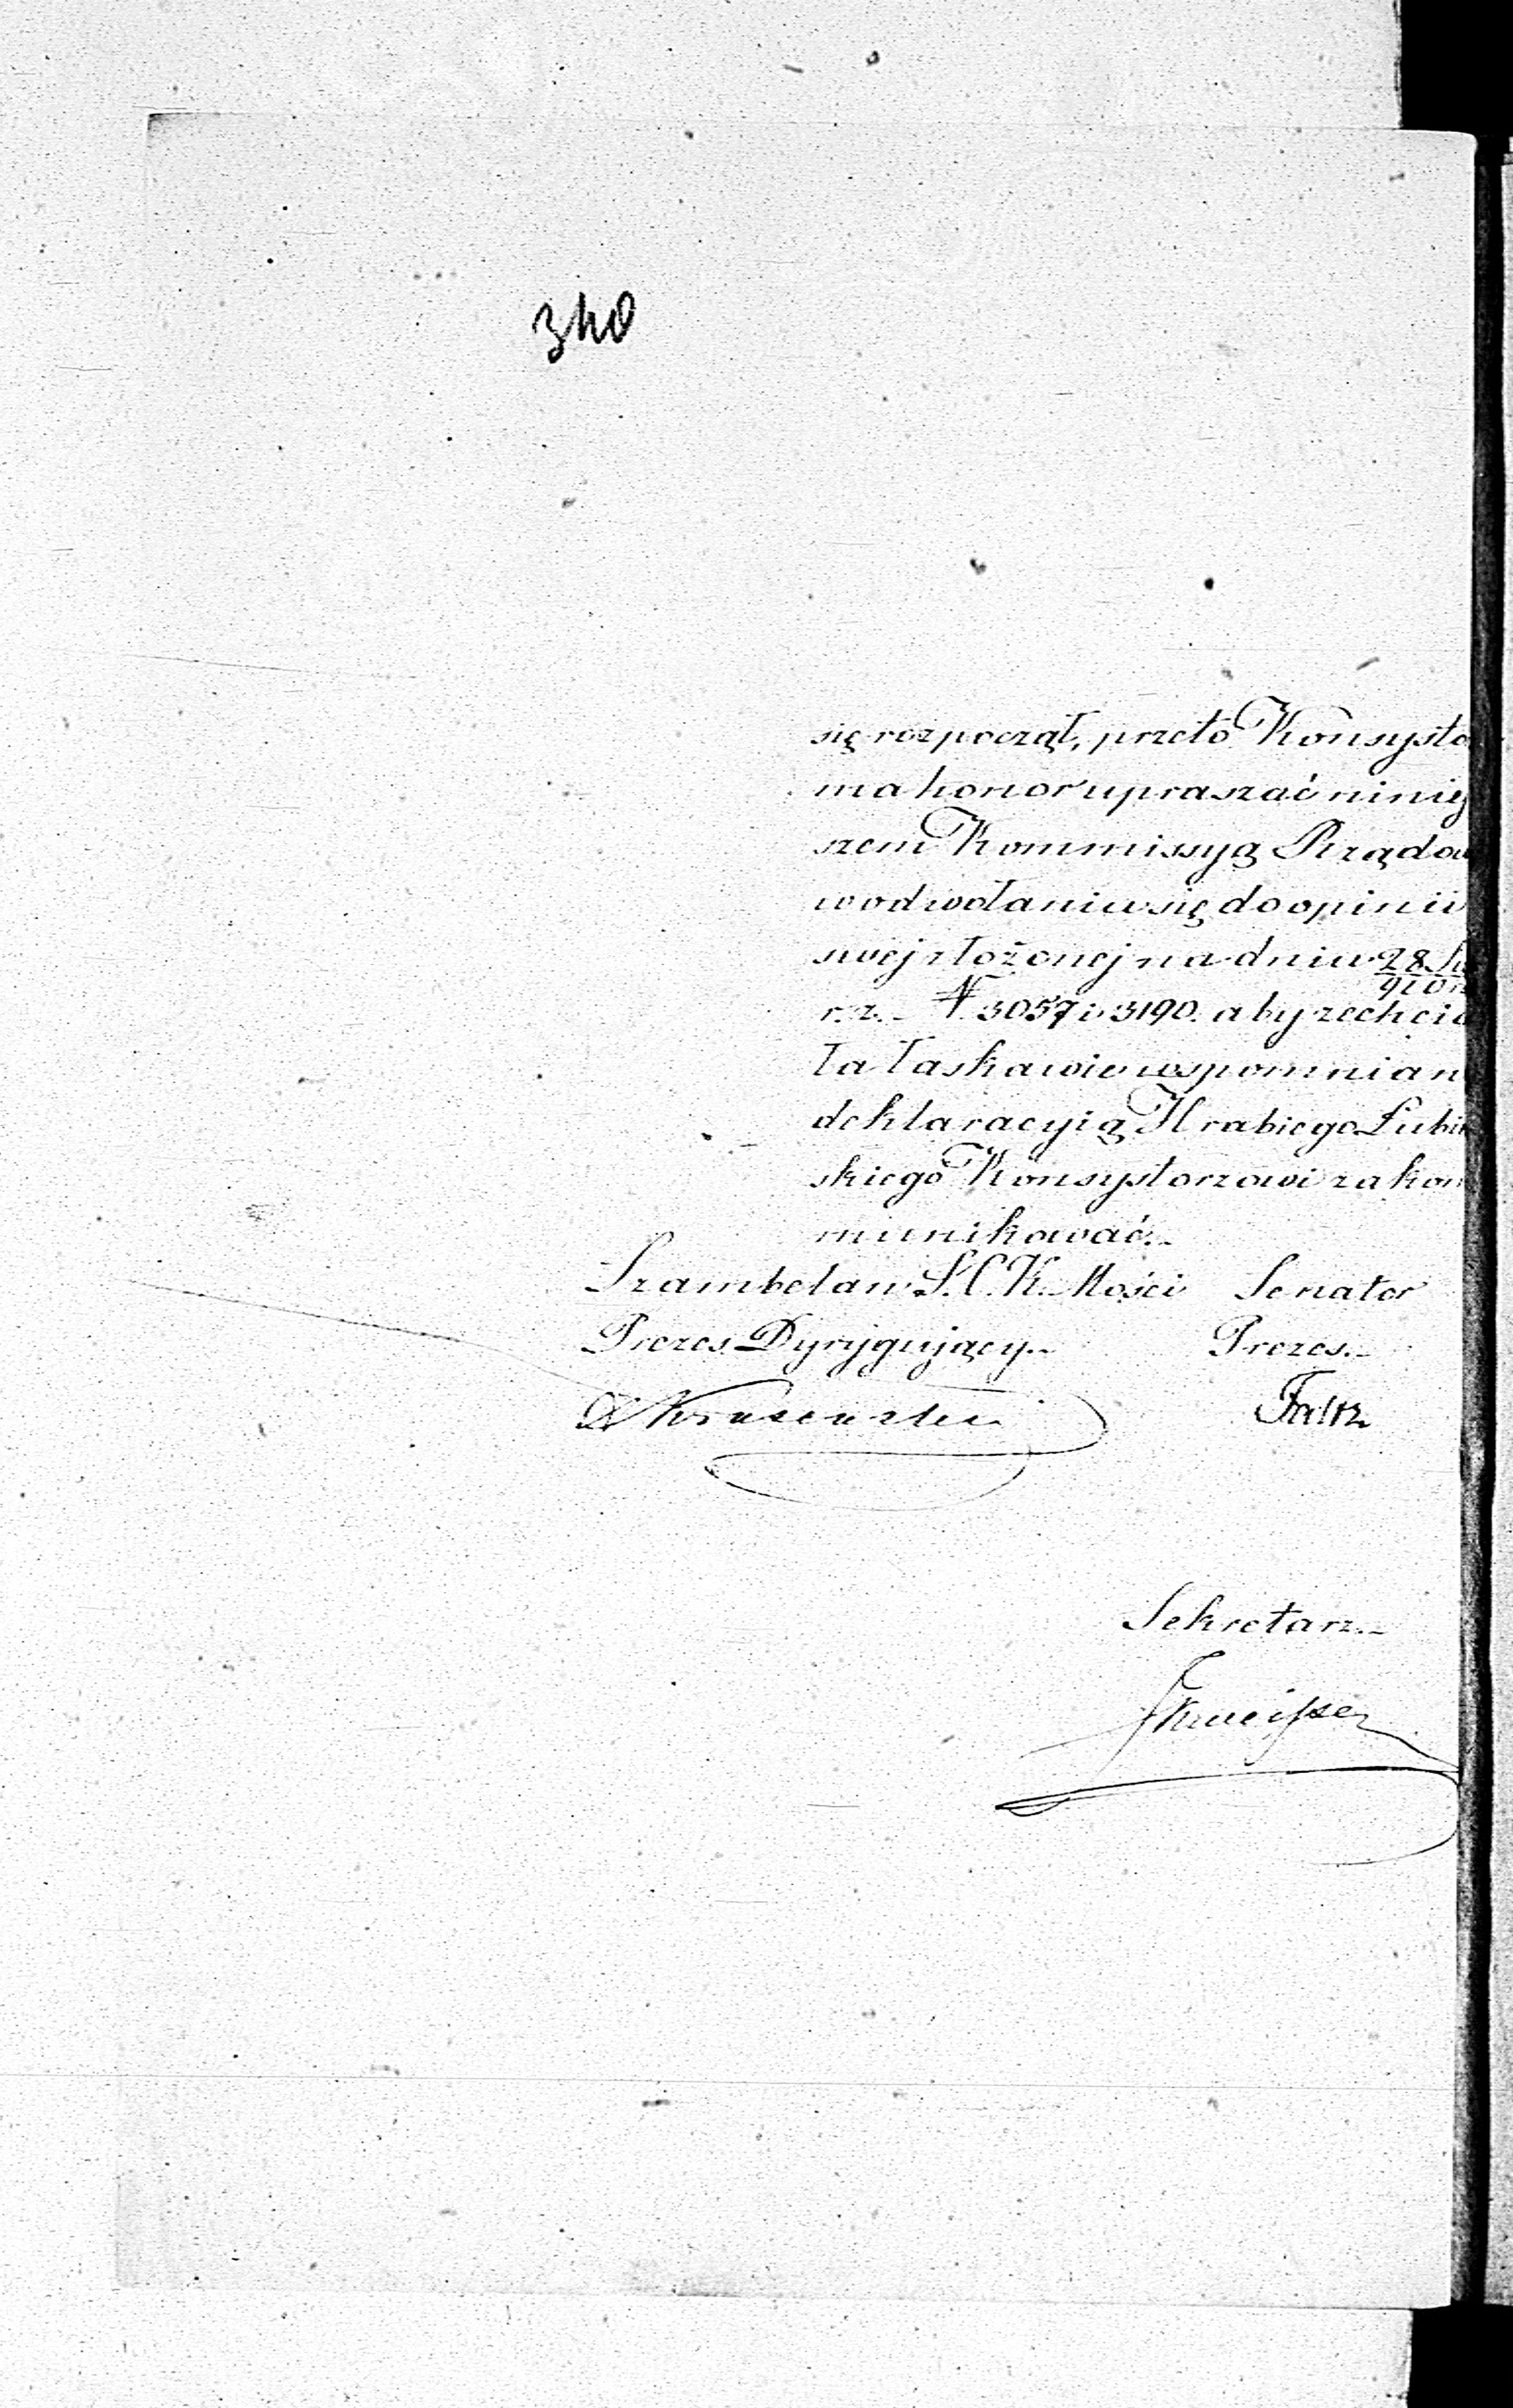 340
się rozpoczął, przeto Konsysto
ma honor upraszać niniej
szem Kommissyą Rządow
w odwołaniu się do opinii
swej złożonej na dniu 28
r. z. N. 3057 i 3190. aby zechcia
ła łaskawie wspomnian
deklaracyią Hrabiego Łubiń
skiego Konsystorzowi zakom
munikować.
Szambelan J. C. K. Mości Senator
Prezes Dyrygujący Prezes.
Faltz
Sekretarz.